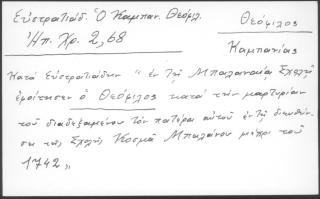 Εὐστρατιάδ. Ὁ Καμπαν. Θεόφιλ.
Ἠπ. Χρ. 2, 68
Θεόφιλος
Καμπανίας
Κατὰ Εὐστρατιάδην "ἐν τῇ Μπαλαναίᾳ Σχολῇ
ἐφοίτησεν ὁ Θεόφιλος κατὰ τὴν μαρτυρίαν
τοῦ διαδεξαμένου τὸν πατέρα αὐτοῦ ἐν τῇ διευθύν-
σει τῆς Σχολῆς Κοσμᾶ Μπαλάνου μέχρι τοῦ
1742"